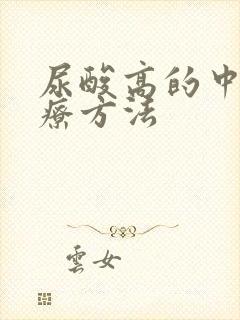 尿酸高的中
療方法
雲女